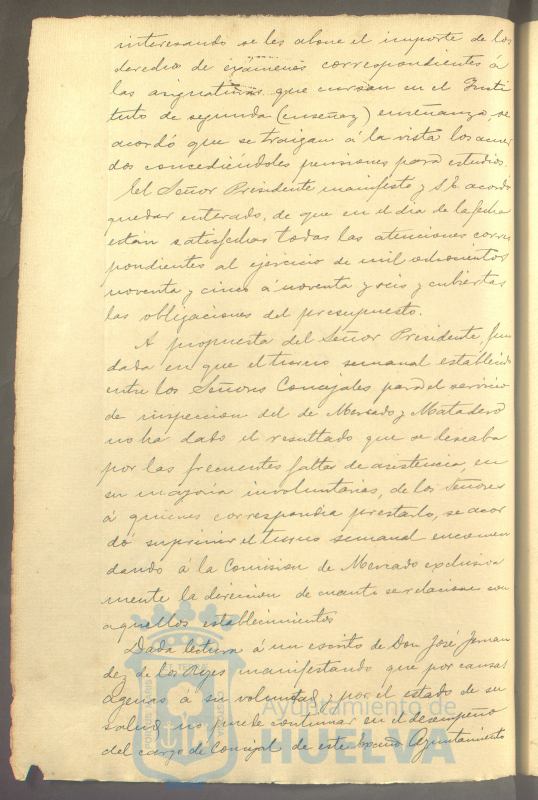 interesando se les abone el importe de los
derechos de exámenes correspondientes á
las asignaturas que cursan en el Insti
tuto de segunda (enseñaz) enseñanza se
acordó que se traigan á la vista los acuer
dos concediéndoles pensiones para estudios.
El Señor Presidente manifestó y S. E. acordó
quedar enterado, de que en el dia de la fecha
están satisfechas todas las atenciones corres
pondientes al ejercicio de mil ochocientos
noventa y cinco á noventa y seis y cubiertas
las obligaciones del presupuesto.
A propuesta del Señor Presidente, fun
dada en que el turno semanal establecido
entre los Señores Concejales para el servicio
de inspeccion del de Mercado y Matadero
no ha dado el resultado que se deseaba
por las frecuentes faltas de asistencia, en
su mayoria involuntarias, de los Señores
á quienes correspondia prestarlo, se acor
dó suprimir el turno semanal encomen
dando á la Comision de Mercado exclusiva
mente la direccion de cuanto se relacione con
aquellos establecimientos
Dada lectura á un escrito de Don José Fernan
dez de los Reyes manifestando que por causas
agenas á su voluntad y por el estado de su
salud no puede continuar en el desempeño
del cargo de Concejal de este Ayuntamiento
Ayuntamiento de
HUELVA